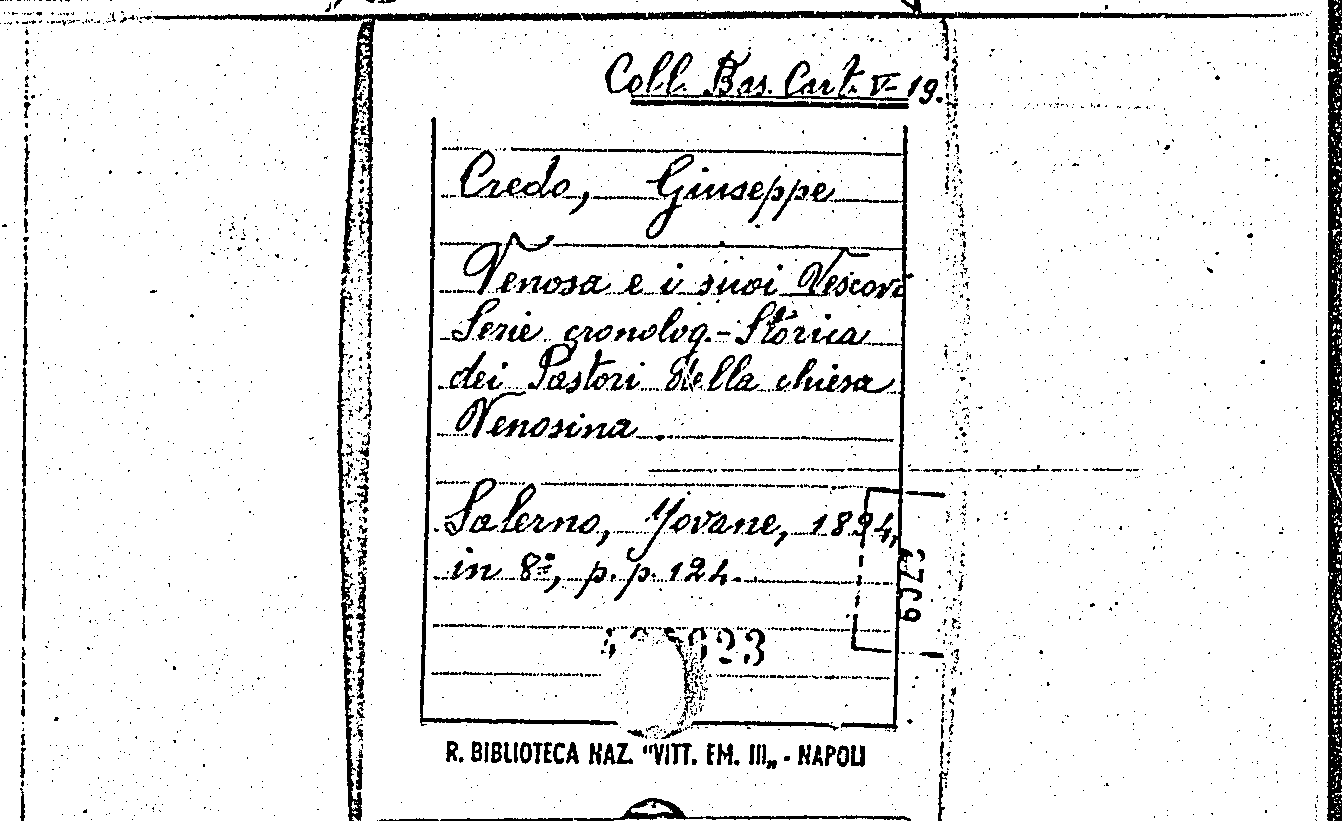 Coll. Bas. Cart. V-19.
Credo, Giuseppe
Venosa e i suoi Vescovi
Serie cronolog.- Storica
dei Pastori della chiesa
Venosina.
Salerno, Jovane, 1894,
in 8º, p.p. 124.
R. BIBLIOTECA NAZ. "VITT. EM. III„ - NAPOLI